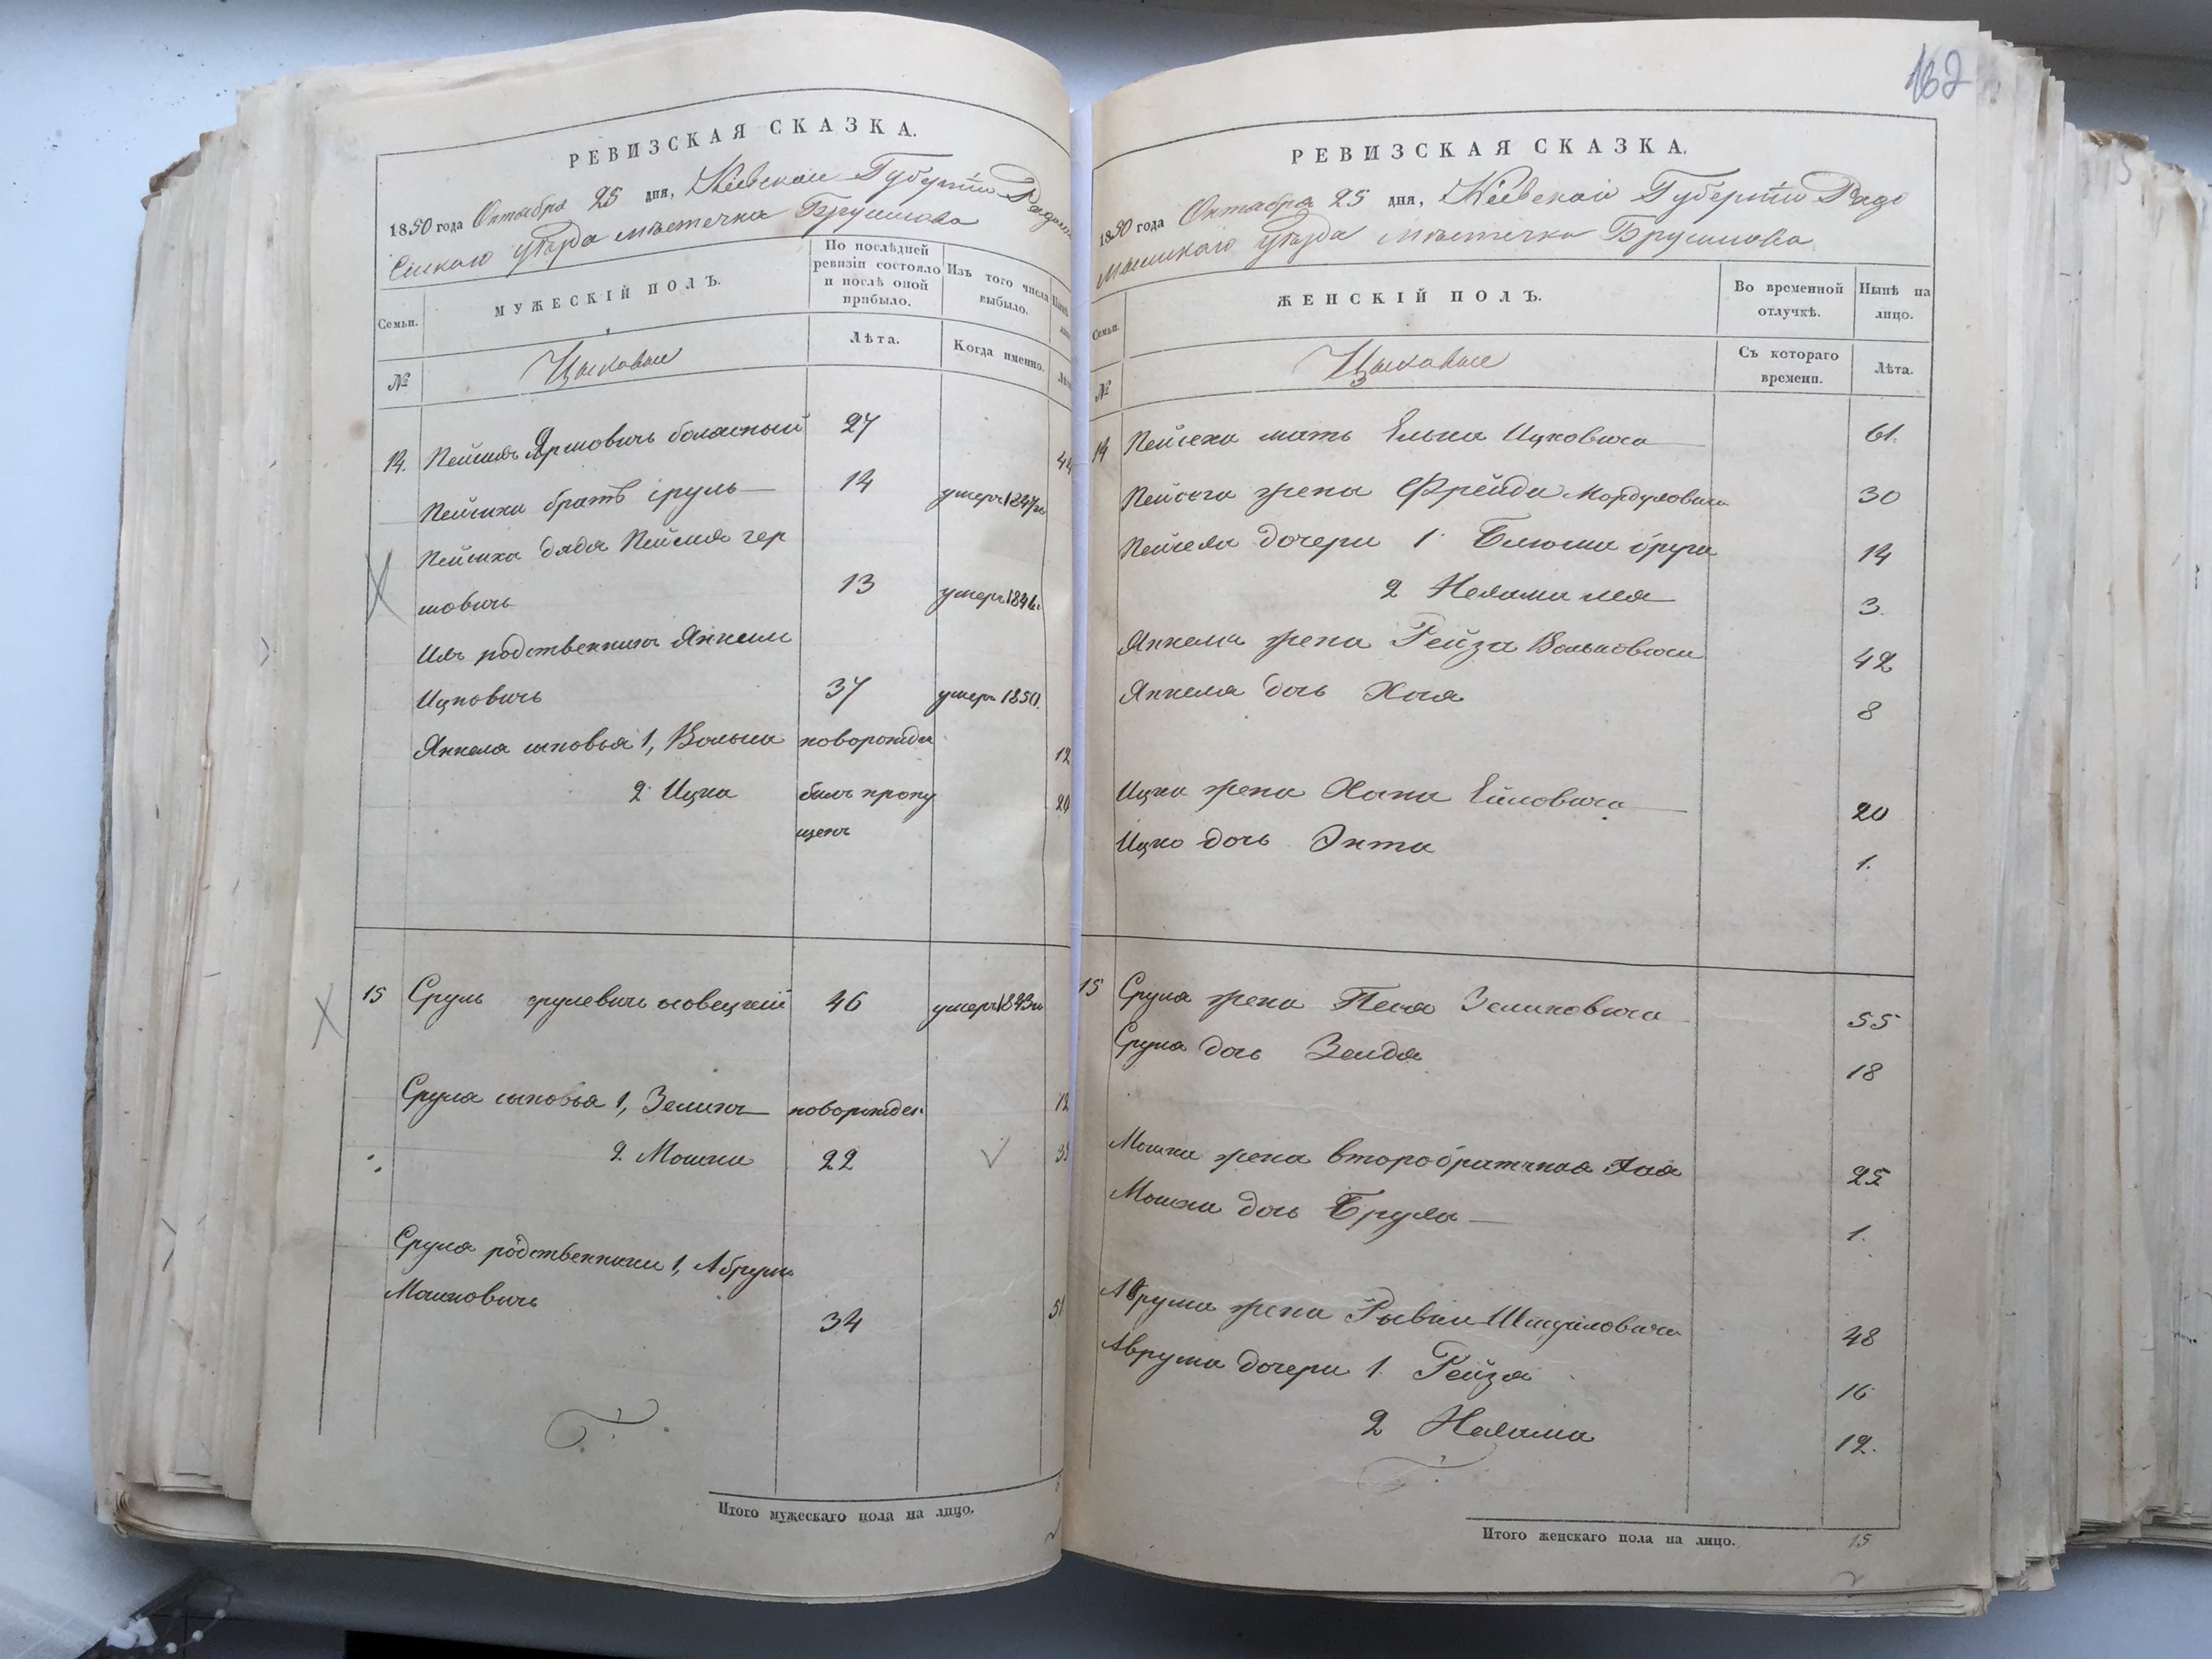 162
РЕВИЗСКАЯ СКАЗКА.
1850 года Октября 25 дня, Кіевской Губерніи Радомы
слскаго уѣзда мѣстечка Брусилова
Семьи.
МУЖЕСКІЙ ПОЛЪ.
По послѣдней ревизіи состояло и послѣ оной прибыло.
Изъ того числа выбыло.
№
Лѣта.
Когда именно.
14. Пейсахъ Ярмовичь 27 44
Пейсаха братъ Сруль 14 умеръ 1847го
Пейсаха дядя Пейсихъ гер
шовичь 13 умеръ 1846г
Ихъ родственникъ Янкель
Ицковичь 37 умеръ 1850.
Янкеля сыновья 1, Волько новорожден 12
2 Ицко былъ пропу 20
щенъ
15 Сруль Срулевичь осовецкій 46 умеръ 1843го
Сруля сыновья 1, Зеликъ новорожден 12
2. Мошко 22
Сруля родственники 1, Абрумъ
Мошковичь
34 51
Итого мужескаго пола на лицо.
РЕВИЗСКАЯ СКАЗКА.
1850 года Октября 25 дня, Кіевской Губерніи Радо
мыслскаго уѣзда мѣстечка Брусилова
Семьи.
ЖЕНСКІЙ ПОЛЪ.
Во временной отлучкѣ.
Нынѣ на лицо.
№
Съ котораго времени.
Лѣта.
14 Пейсаха мать Елька Ицковича 61.
Пейсаха жена Фрейда Мордуховича 30
Пейсаха дочери 1. Блюма 14
2 Нехама лея 3.
Янкеля жена Рейза Вольковича 42
Янкеля дочь Хая 8
Ицка жена Хана 20
Ицко дочь Энта 1.
15 Сруля жена Песя Зеликовича 55
Сруля дочь Зелда 18
Мошка жена второбрачная Хая 25
Мошка дочь Бруха 1.
Аврума жена Рывка Шмуйловича 48
Аврума дочери 1. Рейзя 16
2 Нехама 12.
Итого женскаго пола на лицо. 15